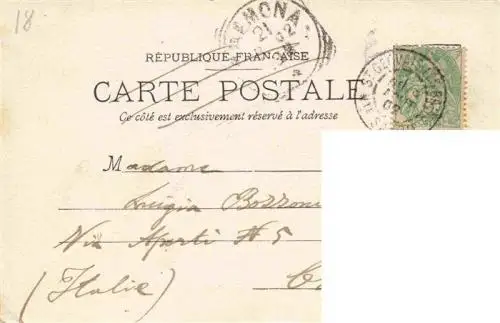 18
CREMONA
21
02
RÉPUBLIQUE FRANÇAISE
CARTE POSTALE
Ce côté est exclusivement réservé à l'adresse
Madame
Luigia Bozzoni
Via Aporti N 5
C
(Italie)